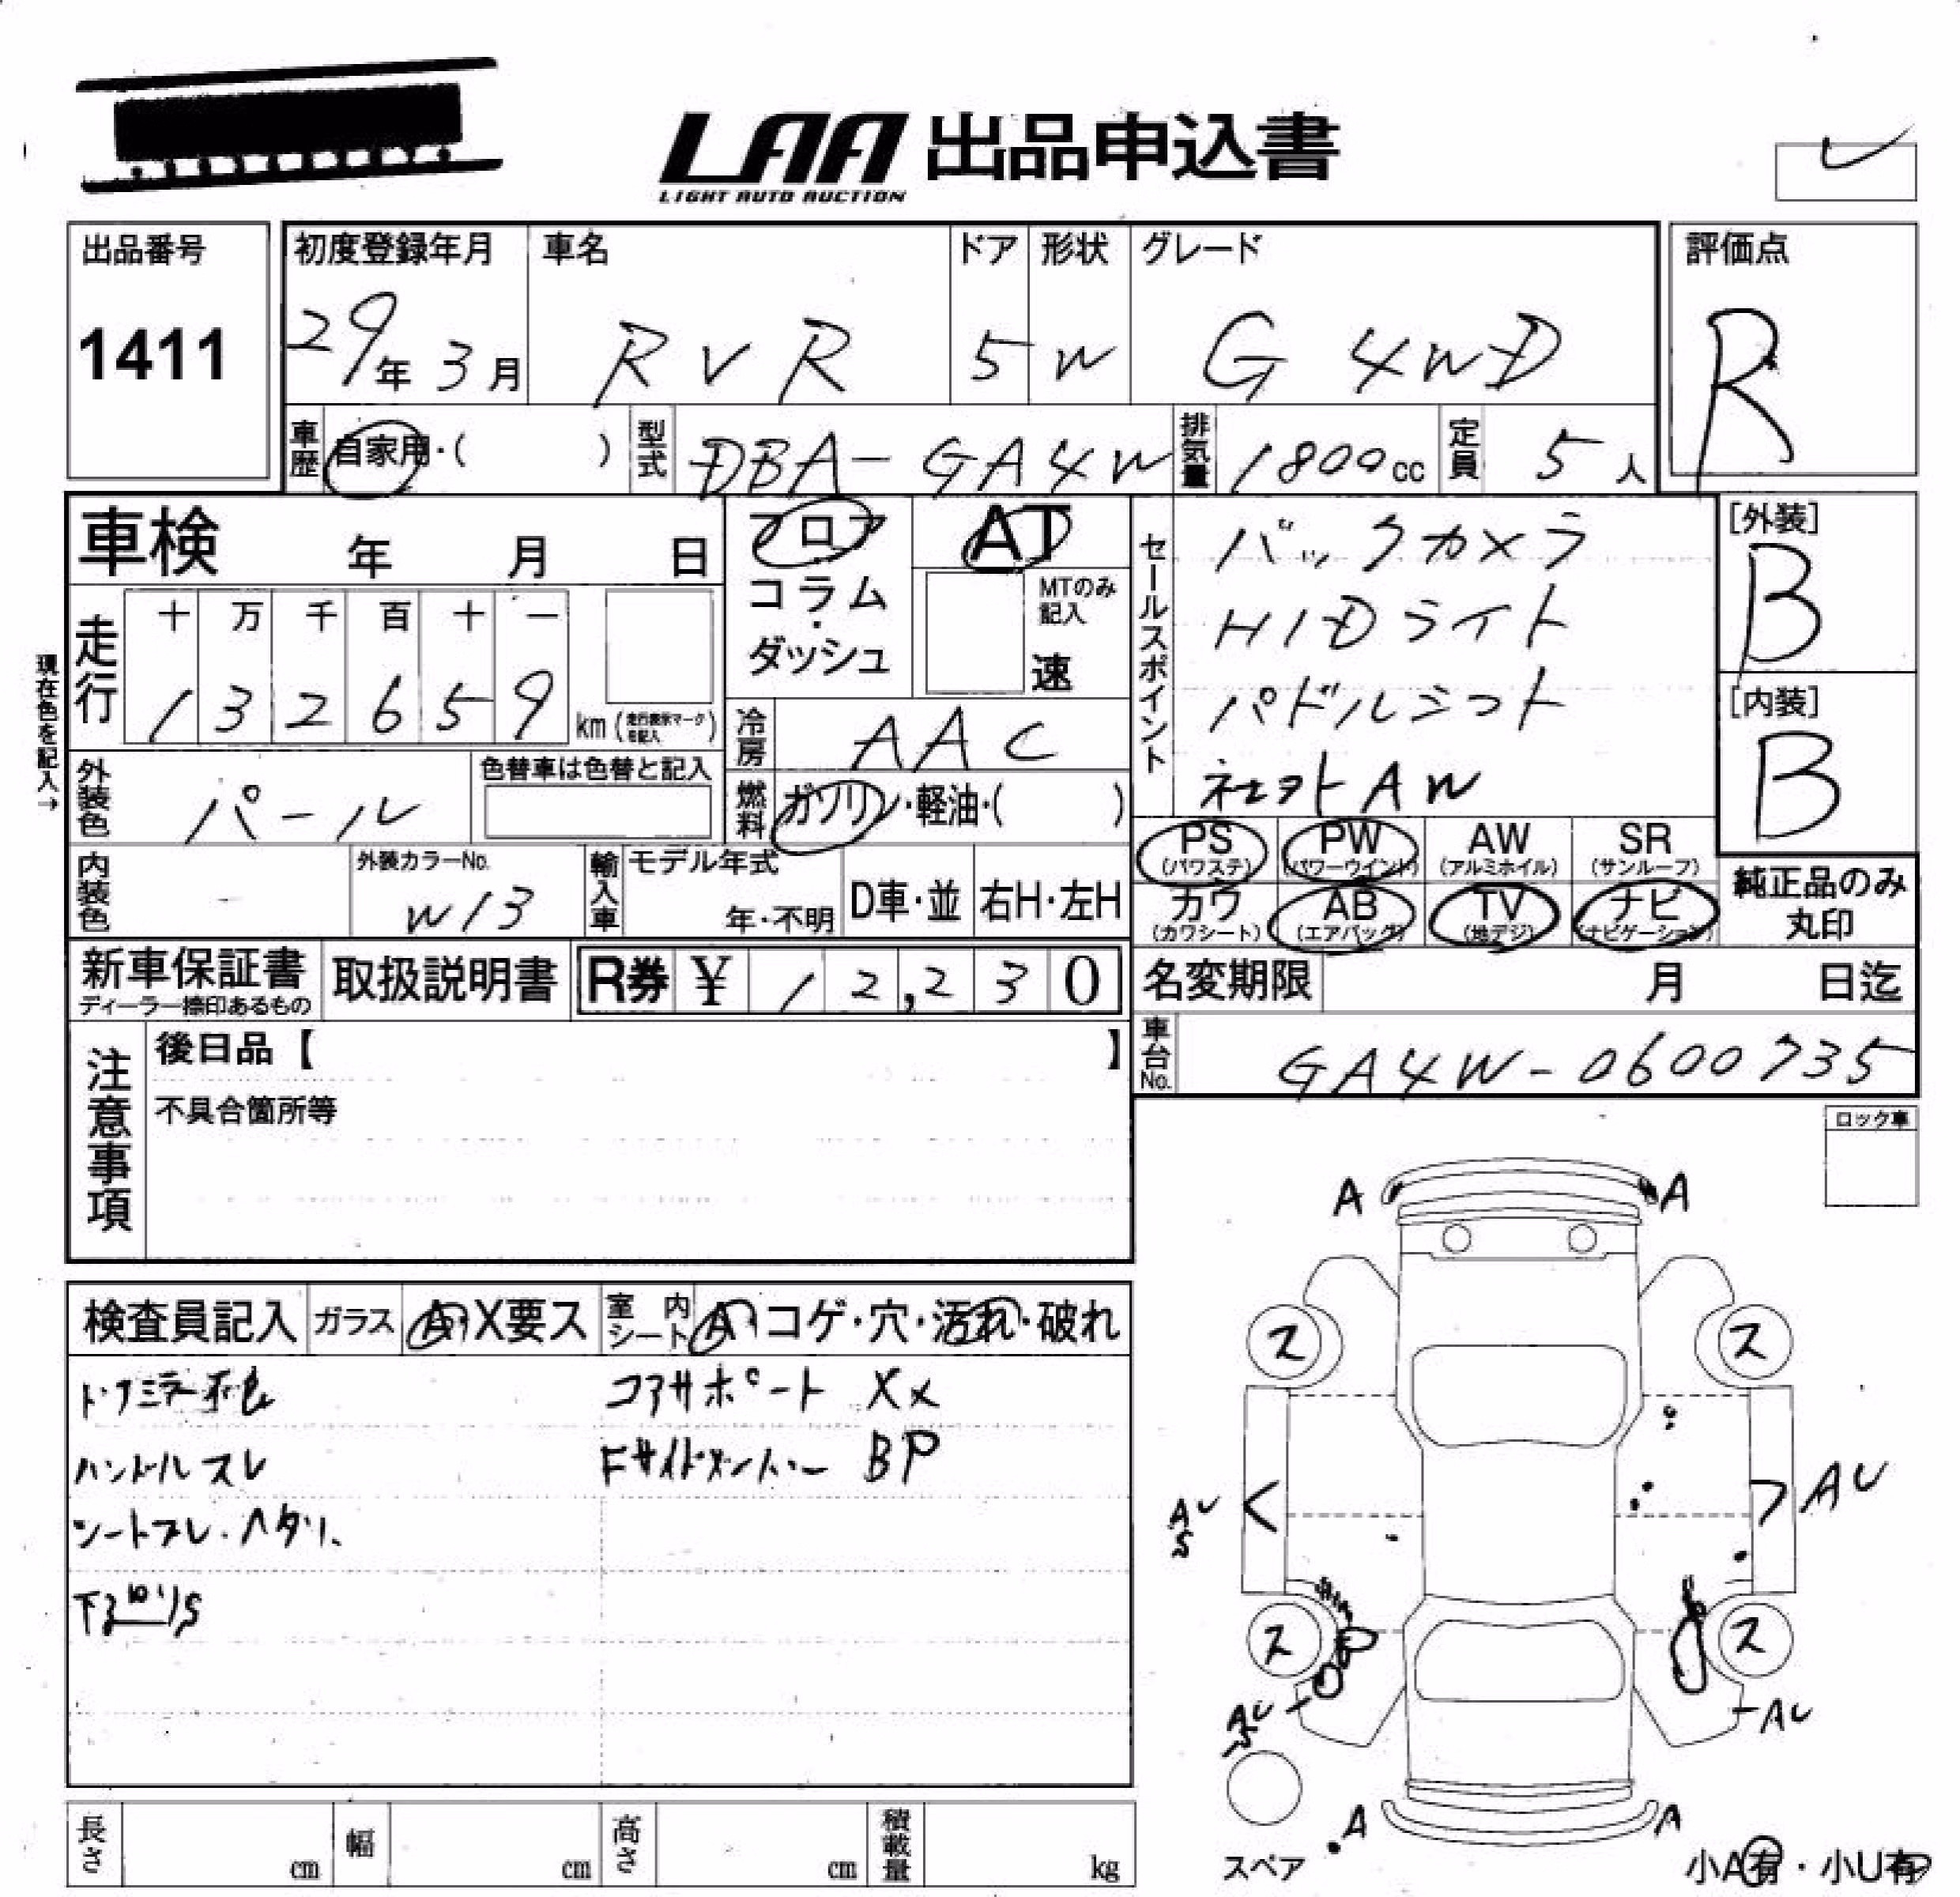 LAA 出品申込書
LIGHT AUTO AUCTION
出品番号
1411
初度登録年月
29年3月
車名
RVR
ドア
5
形状
W
グレード
G 4WD
評価点
R
車歴
自家用・( )
型式
DBA-GA4W
排気量
1800cc
定員
5人
車検 年 月 日
フロア
コラム
・
ダッシュ
AT
MTのみ
記入
速
セールスポイント
バックカメラ
HIDライト
パドルシフト
社外AW
[外装]
B
[内装]
B
現在色を記入→
走行
十 万 千 百 十 一
1 3 2 6 5 9
km (走行表示マークを記入)
冷房
AAC
燃料
ガソリン・軽油・( )
外装色
パール
色替車は色替と記入
内装色
-
外装カラーNo.
W13
輸入車
モデル年式
年・不明
D車・並
右H・左H
PS
(パワステ)
PW
(パワーウインド)
AW
(アルミホイル)
SR
(サンルーフ)
カワ
(カワシート)
AB
(エアバッグ)
TV
(地デジ)
ナビ
(ナビゲーション)
純正品のみ
丸印
新車保証書
ディーラー捺印あるもの
取扱説明書
R券 ¥ 12,230
名変期限 月 日迄
車台No.
GA4W-0600735
注意事項
後日品【 】
不具合箇所等
ロック車
検査員記入
ガラス
A・X要ス
室内シート
A・コゲ・穴・汚れ・破れ
コアサポート XX
ハンドルスレ
FサイドメンバーBP
シートスレ・ヘタリ、
A A
ス ス
AU
S
AU
ス ス
AU
S
AU
A A
スペア
小A有・小U有
長さ cm
幅 cm
高さ cm
積載量 kg